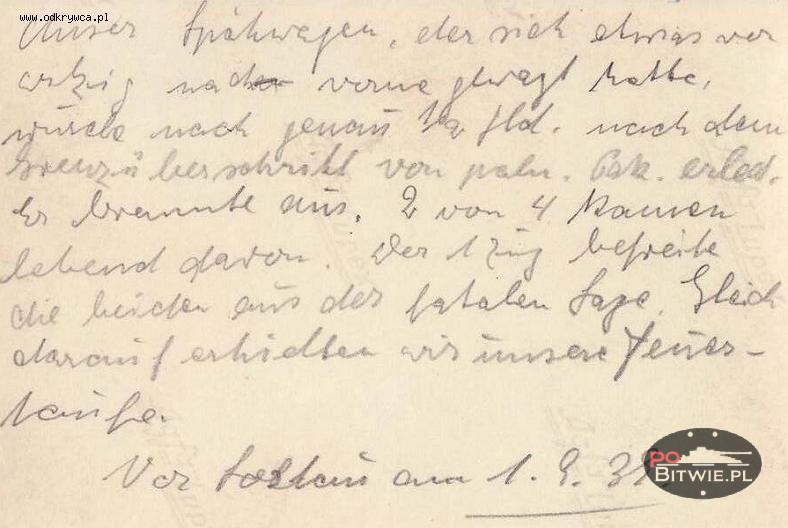 www.odkrywca.pl
Unser Spähwagen, der sich etwas vor
witzig nach vorne gewagt hatte,
wurde nach genau 1/2 Std. nach dem
Grenzüberschritt von poln. Pak. erled.
Er brannte aus. 2 von 4 kamen
lebend davon. Der 1 Zug befreite
die beiden aus der fatalen Lage. Gleich
darauf erhielten wir unsere Feuer-
taufe.
Vor am 1. 9. 39
PO
BITWIE.PL